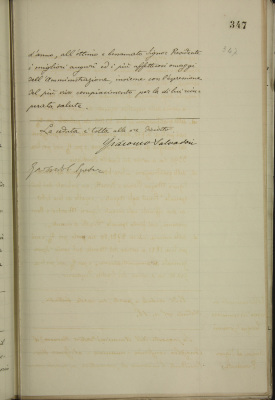 347
d'anno, all'ottimo e benamato Signor Presidente
i migliori auguri ed i più affettuosi omaggi
dell'Amministrazione, insieme con l'espressione
del più vivo compiacimento per la di lui ricu-
perata salute.
La seduta è tolta alle ore diciotto
Giacomo